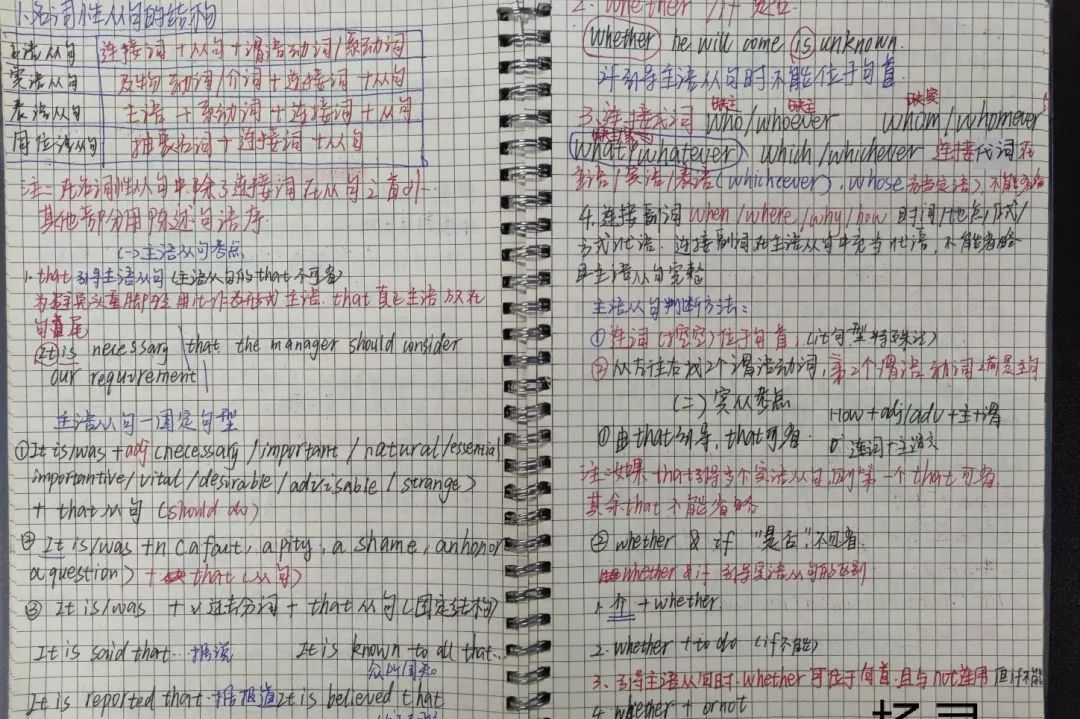 1.名词性从句的结构
主语从句 连接词+从句+谓语动词/系动词
宾语从句 及物动词/介词+连接词+从句
表语从句 主语+系动词+连接词+从句
同位语从句 抽象名词+连接词+从句
注:在名词性从句中除了连接词在从句之首外
其他部分用陈述句语序.
(一)主语从句考点
1. that 引导主语从句(主语从句的that不可省)
用it作为形式主语. that真正主语放在
句尾
It is necessary that the manager should consider
our requirement
主语从句—固定句型
① It is/was + adj (necessary/important/natural/essential
importantive/vital/desirable/advisable/strange)
+ that 从句 (should do)
② It is/was +n (a faut, a pity, a shame, an honor
a question) + that (从句)
③ It is/was + v过去分词 + that 从句(固定结构)
It is said that… 据说 It is known to all that…
众所周知
It is reported that 据报道 It is believed that
2. whether /if 是否.
whether he will come is unknown.
2 if 引导主语从句时不能位于句首.
缺主 缺主 缺宾
3.连接代词 who/whoever whom/whomever
what/whatever which/whichever 连接代词在
主语/宾语/表语(whichever), whose 不能省略
4.连接副词 when/where/why/how 时间/地点/
方式状语. 连接副词在主语从句中充当状语, 不能省略
且主语从句完整
主语从句判断方法:
①连词位于句首, (it句型特殊记)
②从左往右找2个谓语动词, 第2个谓语动词之前是主句
(二)宾从考点 How + adj/adv + 主+谓
①由that引导, that可省.
注:如果that引导多个宾语从句, 则第一个that可省.
其余that不能省略
② whether & if "是否", 不可省.
whether & if 引导宾语从句的区别
1. 介 + whether.
2. whether + to do (if不能)
3、引导主语从句时. whether可位于句首. 且与not连用 但if不能
4. whether + or not